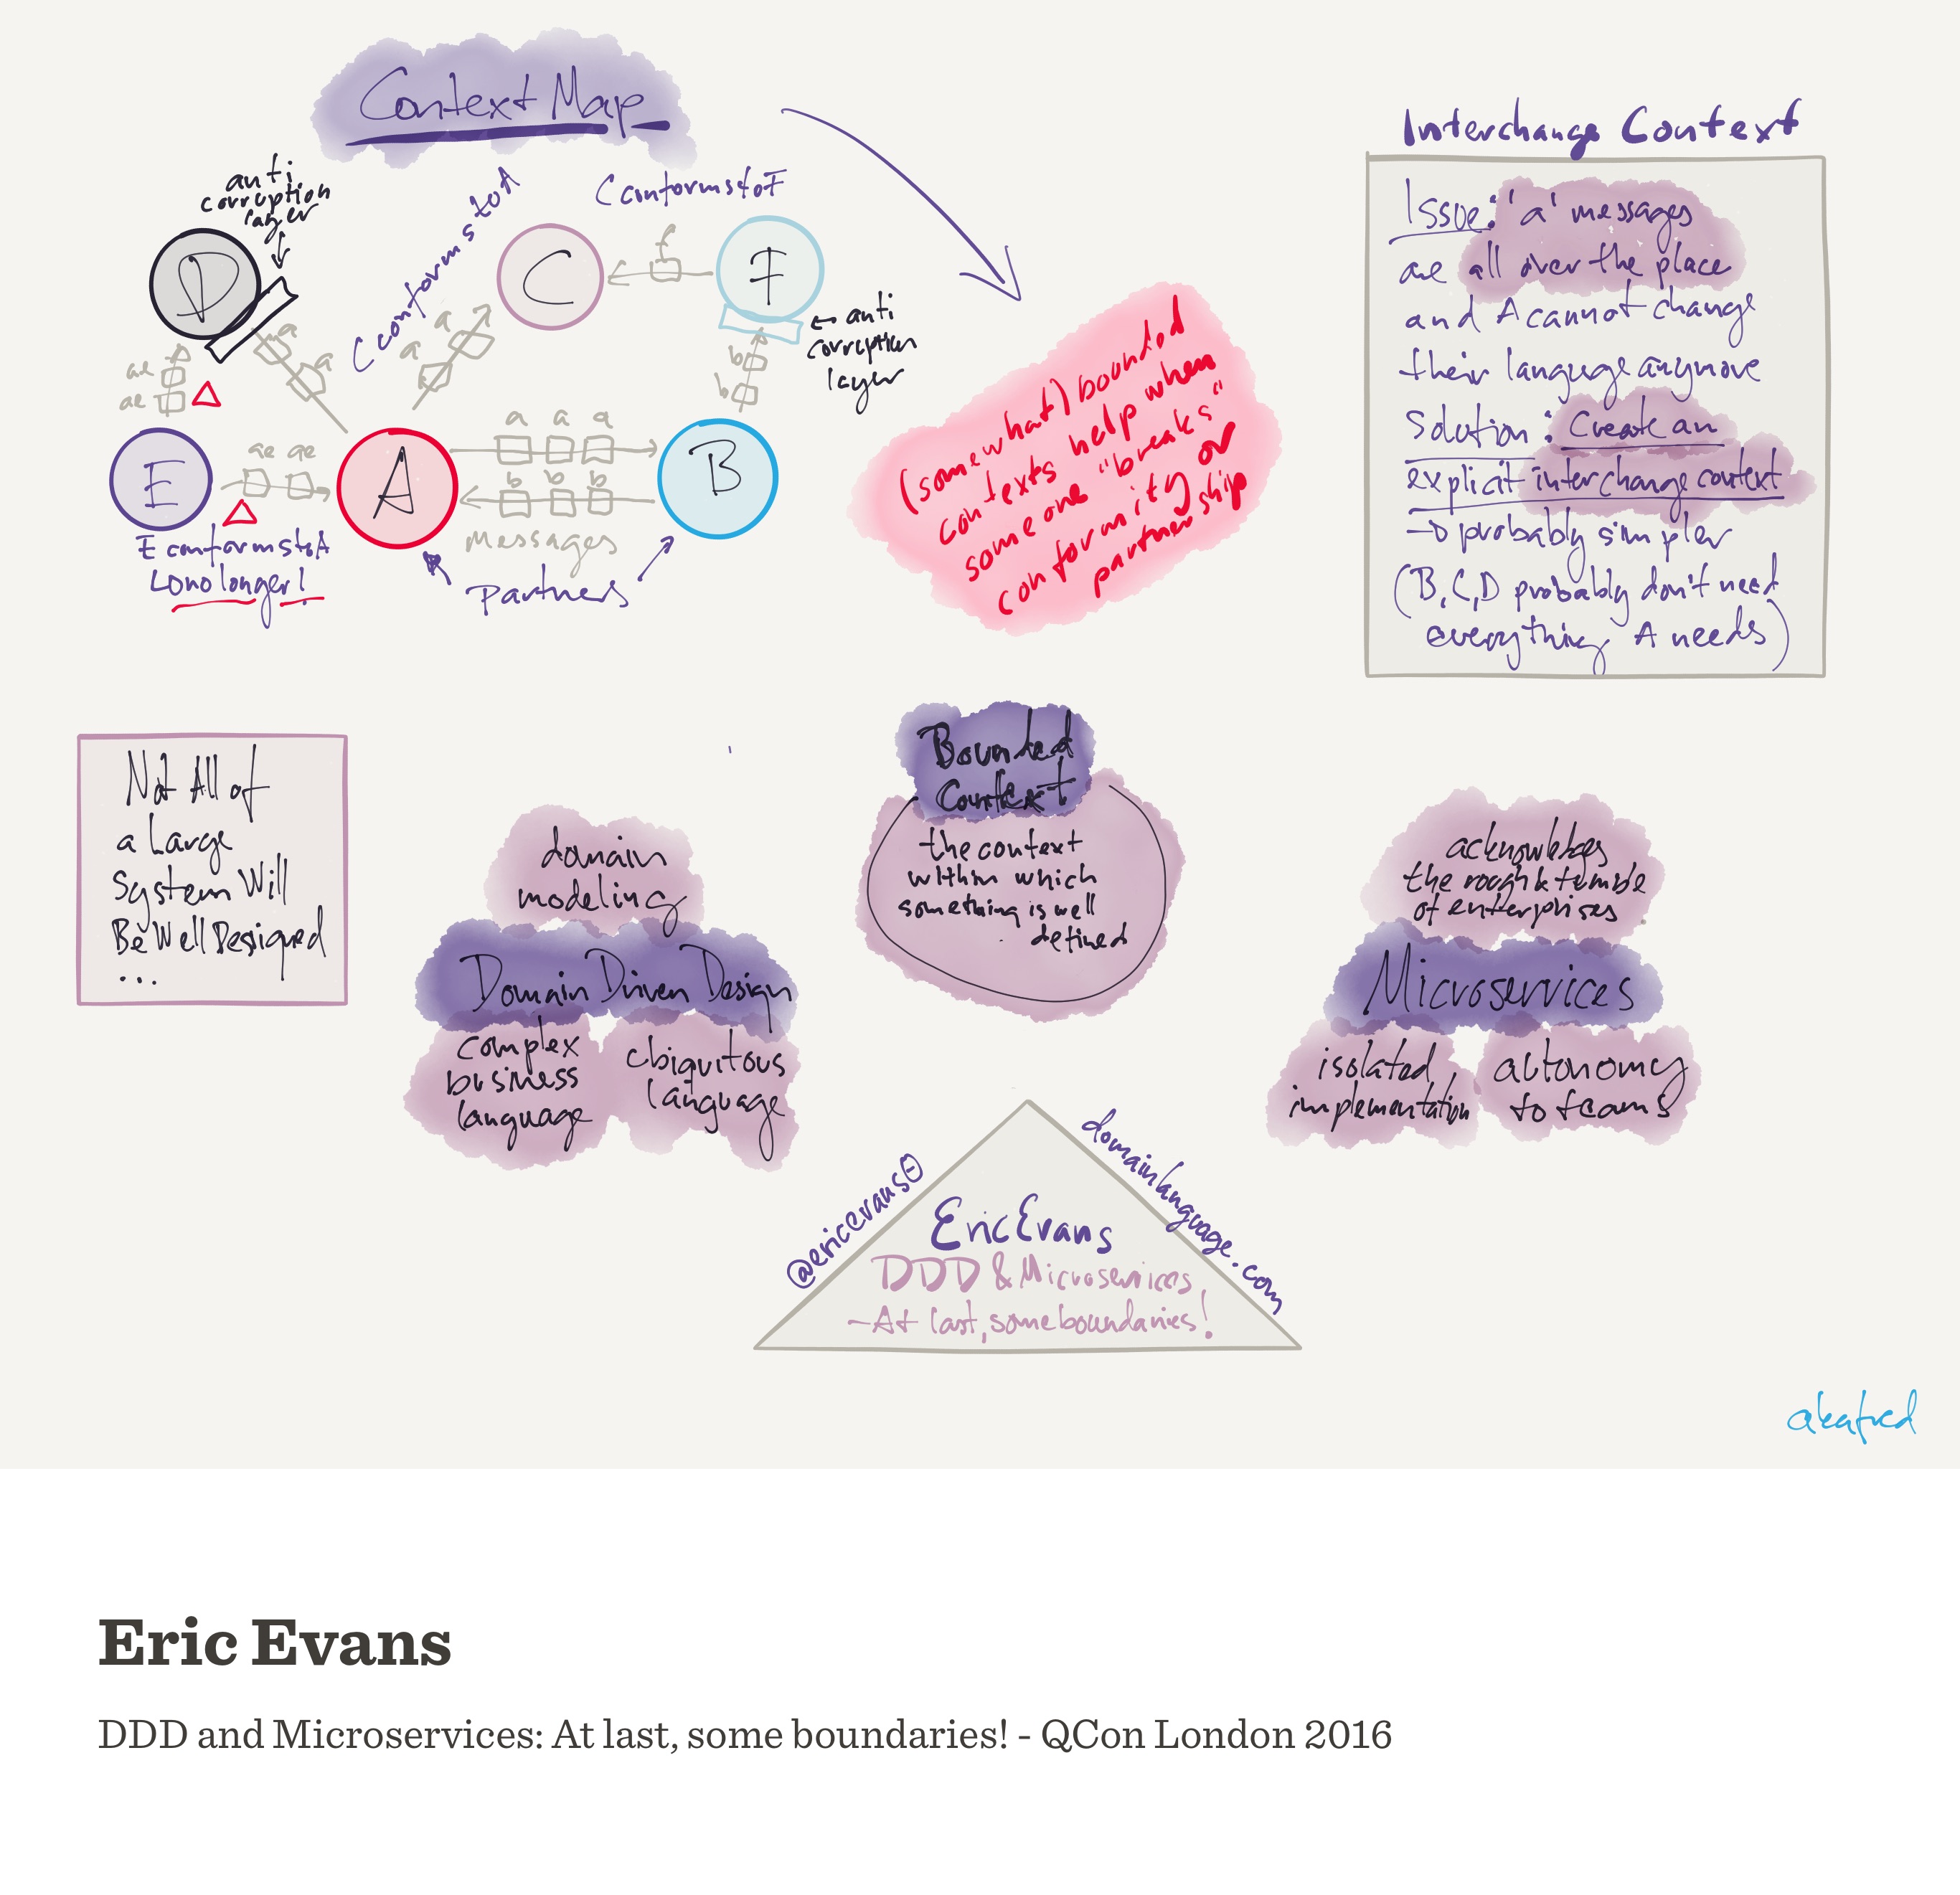 Context Map
anti
corruption
layer
D
C conforms to A
C conforms to F
C
f
F
← anti
corruption
layer
a
a
a
a
ae
ae
b
b
E
ae ae
A
a a a
b b b
messages
B
E conforms to A
no longer!
Partners
(somewhat) bounded
contexts help when
someone "breaks"
conformity or
partnership
Interchange Context
Issue: 'a' messages
are all over the place
and A cannot change
their language anymore
Solution: Create an
explicit interchange context
→ probably simpler
(B, C, D probably don't need
everything A needs)
Not All of
a Large
System Will
Be Well Designed
...
domain
modeling
Domain Driven Design
complex
business
language
ubiquitous
language
Bounded
Context
the context
within which
something is well
defined
acknowledges
the rough & tumble
of enterprises
Microservices
isolated
implementation
autonomy
to teams
@ericevans0
domainlanguage.com
Eric Evans
DDD & Microservices
- At last, some boundaries!
akafred
Eric Evans
DDD and Microservices: At last, some boundaries! - QCon London 2016